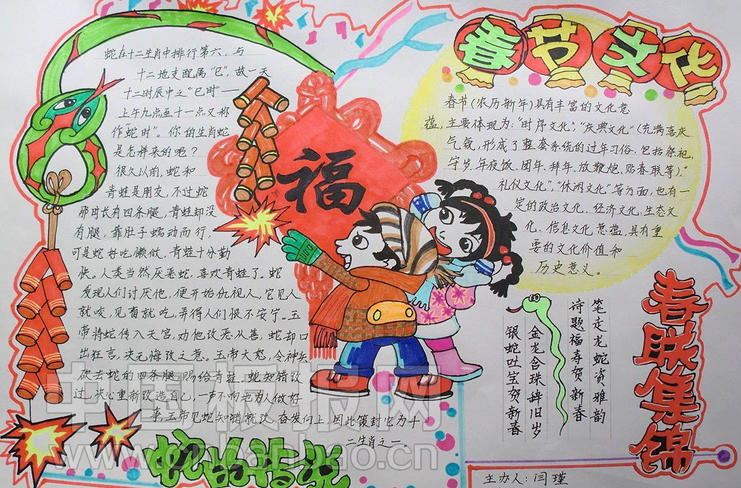 蛇在十二生肖中排行第六，与
十二地支配属“巳”，故一天
十二时辰中之“巳时”——
上午九点至十一点又称
作“蛇时”。你的生肖蛇
是怎样来的呢？
很久以前，蛇和
青蛙是朋友，不过蛇
那时长有四条腿，青蛙却没
有腿，靠肚子蠕动而行，
可是蛇好吃懒做，青蛙十分勤
快。人类当然厌恶蛇，喜欢青蛙了。蛇
发现人们讨厌他，便开始仇视人，它见人
就咬，见畜就吃，弄得人们很不安宁。玉
帝将蛇传入天宫，劝他改恶从善，蛇却口
出狂言，决无悔改之意。玉帝大怒，令神兵
砍去蛇的四条腿，赐给青蛙。蛇知错改
过，决心重新改造自己，一声不响地为人做好
事，玉帝见蛇知错就改，奋发向上，因此策封它为十
二生肖之一。
福
春节文化
春节（农历新年）具有丰富的文化意
蕴，主要体现为：“时序文化”、“庆典文化”（充满喜庆
气氛，形成了整套系统的过年习俗，包括祭祀，
守岁、年夜饭、团年、拜年、放鞭炮、贴春联等）、
礼仪文化”、“休闲文化”等方面，也有一
定的政治文化、经济文化、生态文
化、信息文化意蕴，具有重
要的文化价值和
历史意义。
春联集锦
笔走龙蛇资雅韵
诗题福寿贺新春
金龙含珠辞旧岁
银蛇吐宝贺新春
蛇的传说
主办人：闫瑾